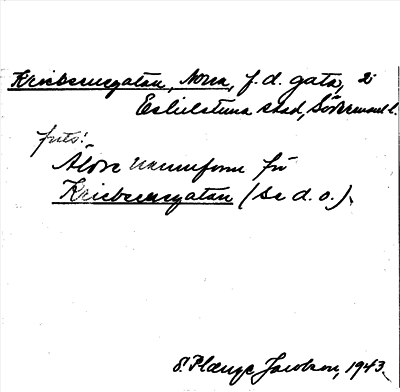 Kriebsensgatan, Norra, f.d. gata, i
Eskilstuna stad, Södermanl.
Äldre namnform för
Kriebsensgatan (se d. o.).
Jacobson, 1943.